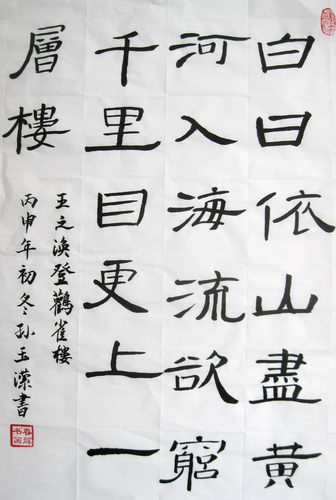 白日依山盡黄
河入海流欲窮
千里目更上一
層樓
王之渙登鸛雀樓
丙申年初冬孫玉藻書